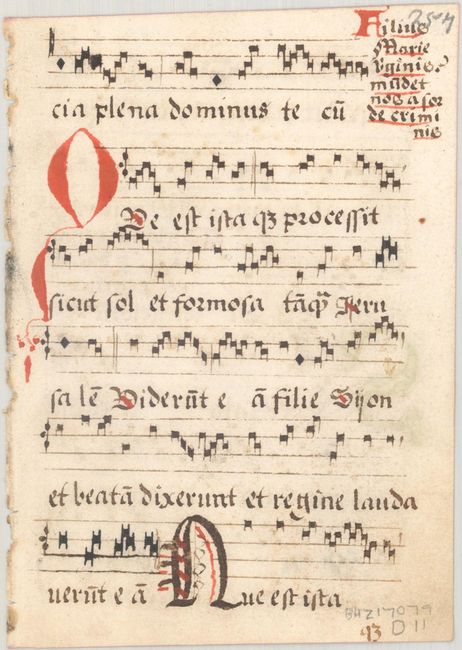 254
Filius
Marie
vginis
mūdet
nos a sor
de crimi
nis
cia plena dominus te cū
Q Ve est ista qȝ processit
sicut sol et formosa tāqȝ Jeru
sa lē Viderūt e ā filie Syon
et beatā dixerunt et regine lauda
uerūt e ā Que est ista
BHZ17079
93 D11